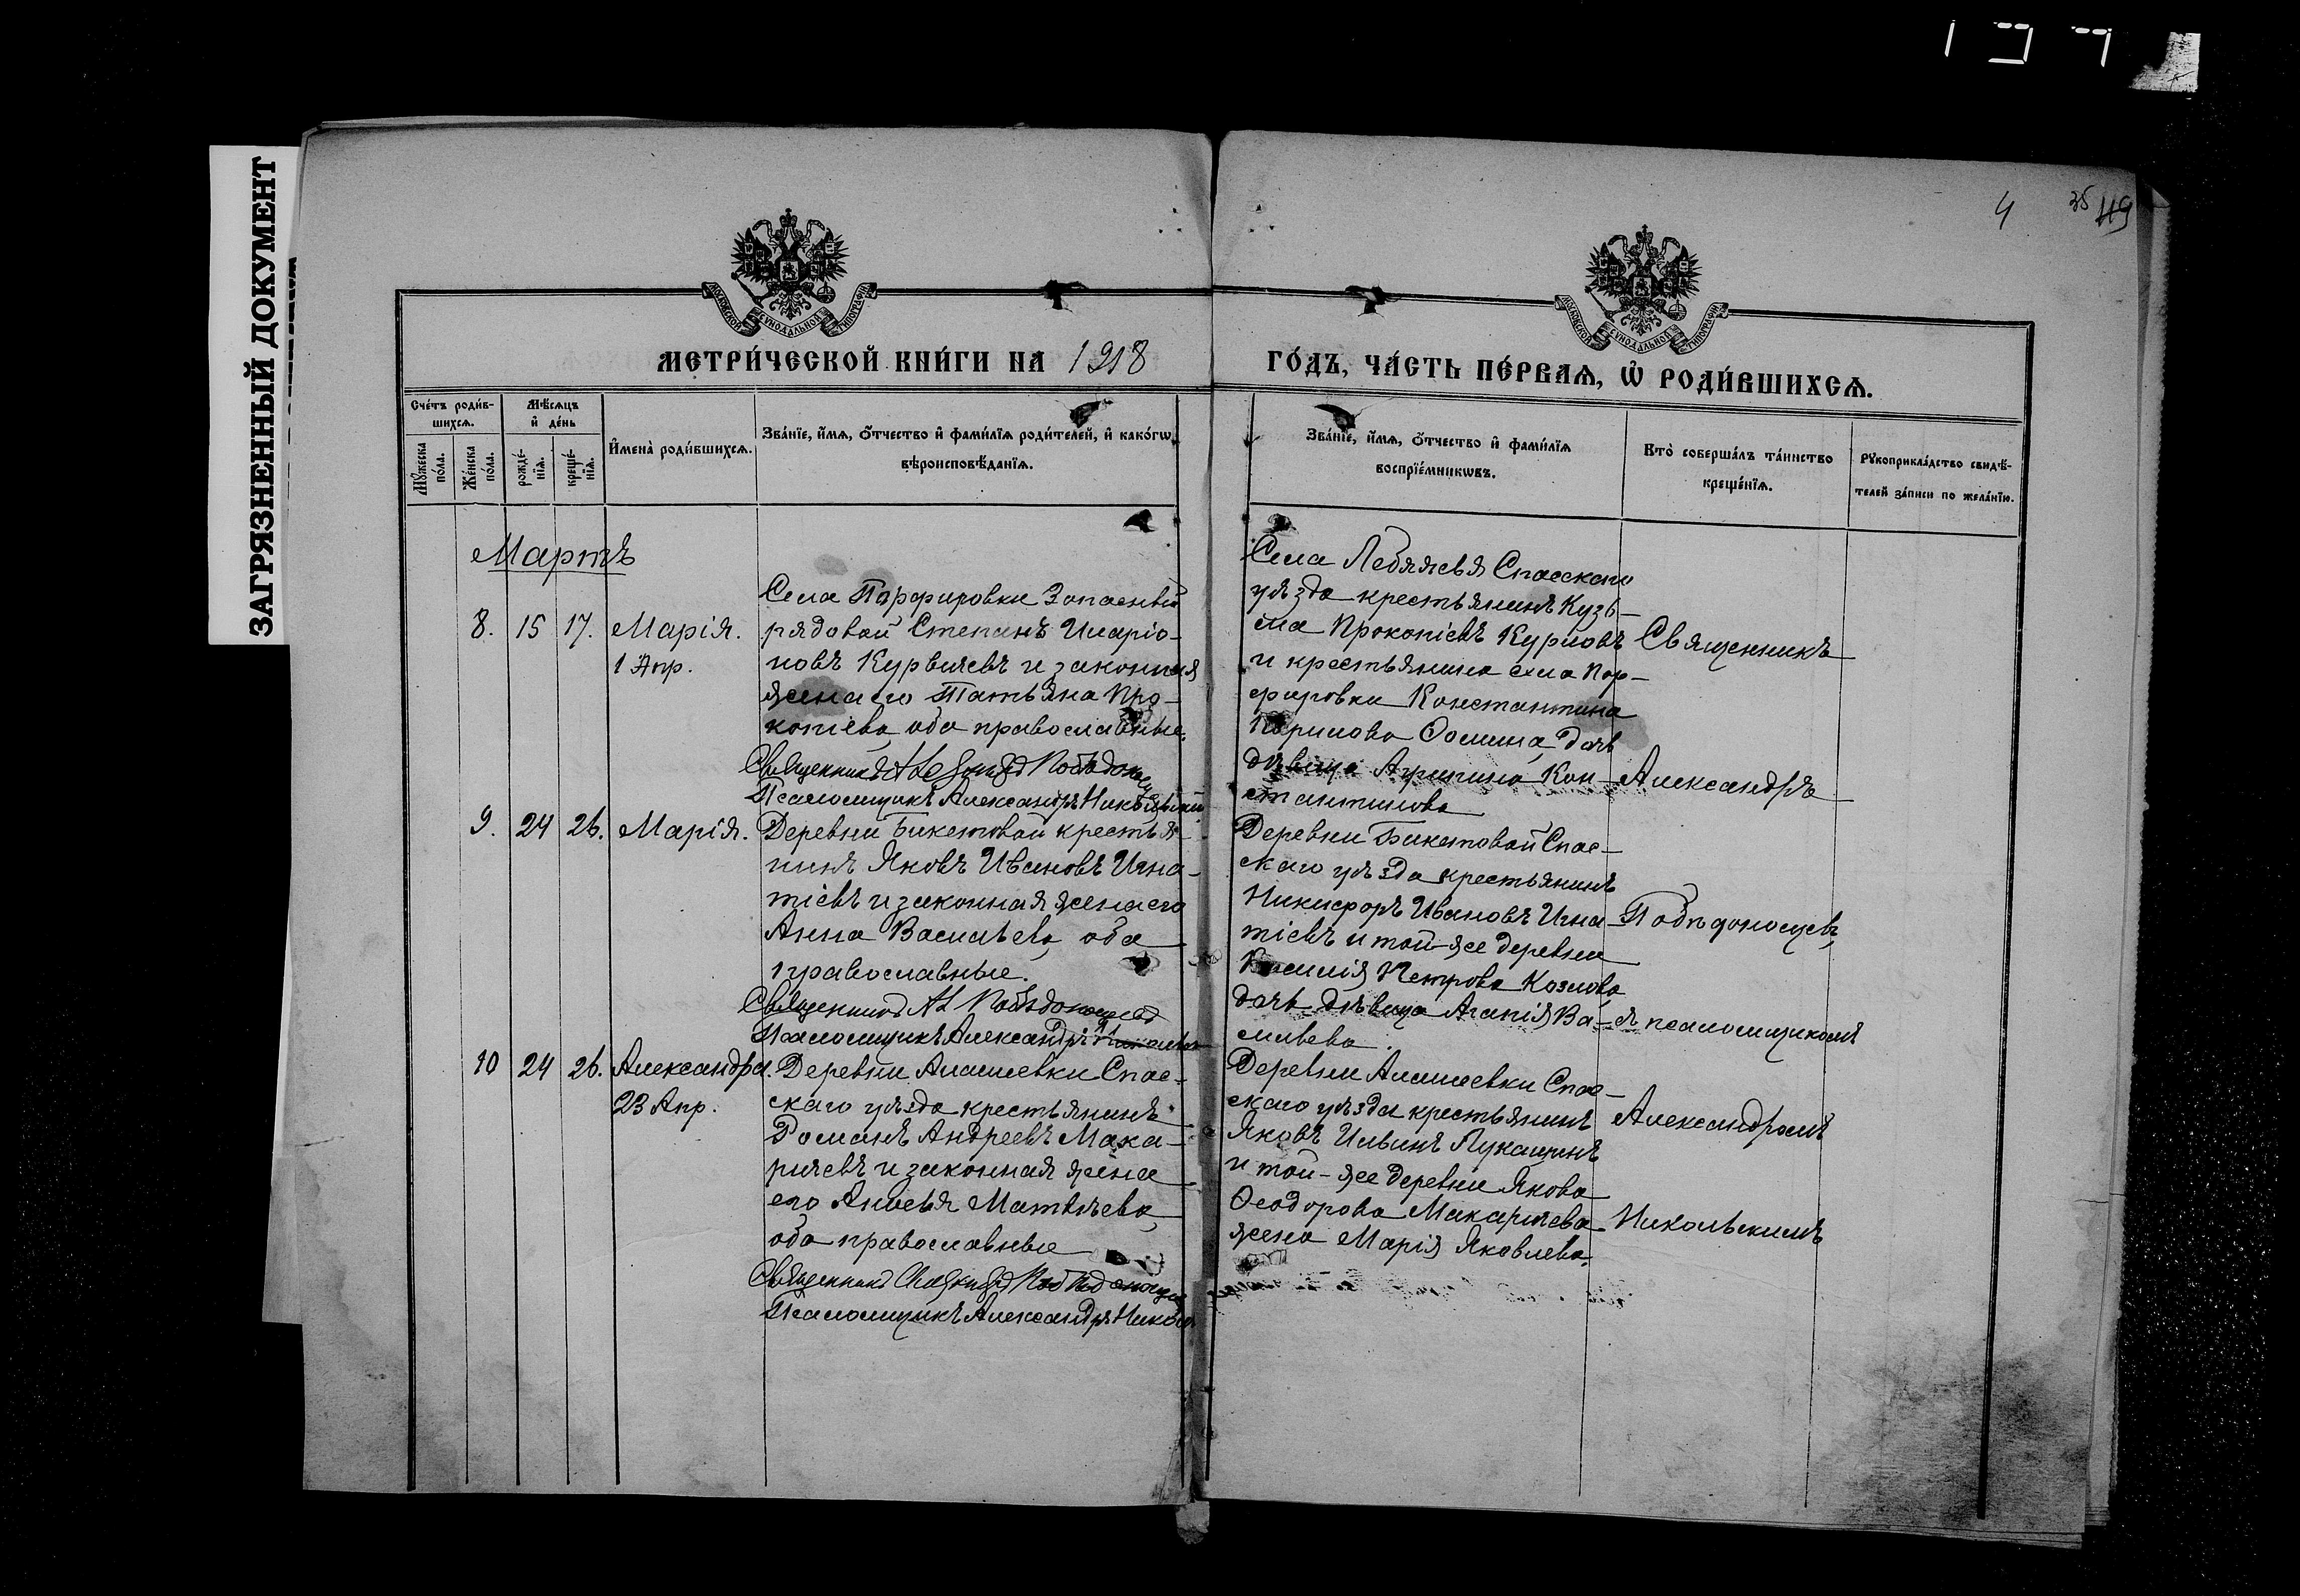 ЗАГРЯЗНЕННЫЙ ДОКУМЕНТ
4
35
119
МОСКОВСКОЙ СѴНОДАЛЬНОЙ ТИПОГРАФІИ
МОСКОВСКОЙ СѴНОДАЛЬНОЙ ТИПОГРАФІИ
МЕТРИ́ЧЕСКОЙ КНИ́ГИ НА 1918
ГО́ДЪ, ЧА́СТЬ ПЕ́РВАѦ, Ѡ҆ РОДИ́ВШИХСѦ.
Сче́тъ роди́в-
шихсѧ.
Мꙋ́жеска по́ла.
Же́нска по́ла.
Мѣ́сѧцъ
и҆ де́нь
рожде́-
нїѧ.
креще́-
нїѧ.
И҆мена̀ роди́вшихсѧ.
Зва́нїе, и҆́мѧ, ѻ҆́тчество и҆ фами́лїѧ роди́телей, и҆ како́гѡ
вѣроисповѣ́данїѧ.
Зва́нїе, и҆́мѧ, ѻ҆́тчество и҆ фами́лїѧ
воспрїе́мникѡвъ.
Кто̀ соверша́лъ та́инство
креще́нїѧ.
Рꙋкоприкла́дство свидѣ́-
телей за́писи по жела́нїю.
Мартъ
8. 15 17. Марія.
1 Апр.
Села Порфировки Запасный
рядовой Степанъ Иларіо-
новъ Курвичевъ и законная
жена его Татьяна Про-
копіева, оба православные.
Священникъ Александръ Побѣдоносцевъ
Псаломщикъ Александръ Никольскій
Села Лебяжья Спасскаго
уѣзда крестьянинъ Кузь-
ма Прокопіевъ Курновъ
и крестьянина села Пор-
фировки Константина
Ѳомина, дочь
дѣвица Агрипина Кон-
стантинова
Священникъ
Александръ
9. 24 26. Марія.
Деревни Бикетовой крестья-
нинъ Яковъ Ивановъ Игна-
тіевъ и законная жена его
Анна Васильева, оба
православные.
Священникъ Ал Побѣдоносцевъ
Псаломщикъ Александръ Никольскій
Деревни Бикетовой Спас-
скаго уѣзда крестьянинъ
Никифоръ Ивановъ Игна-
тіевъ и той-же деревни
Василія Петрова Козлова
дочь дѣвица Агапія Ва-
сильева.
Побѣдоносцевъ,
съ псаломщикомъ
10 24 26. Александра.
23 Апр.
Деревни Алашеевки Спас-
скаго уѣзда крестьянинъ
Романъ Андреевъ Мака-
рычевъ и законная жена
его Анисья Матвѣева,
оба православные
Священникъ Александръ Побѣдоносцевъ
Псаломщикъ Александръ Николь
Деревни Алашеевки Спас-
скаго уѣзда крестьянинъ
Яковъ Ильинъ Лукашинъ
и той-же деревни Якова
Ѳеодорова Макарычева
жена Марія Яковлева.
Александромъ
Никольскимъ